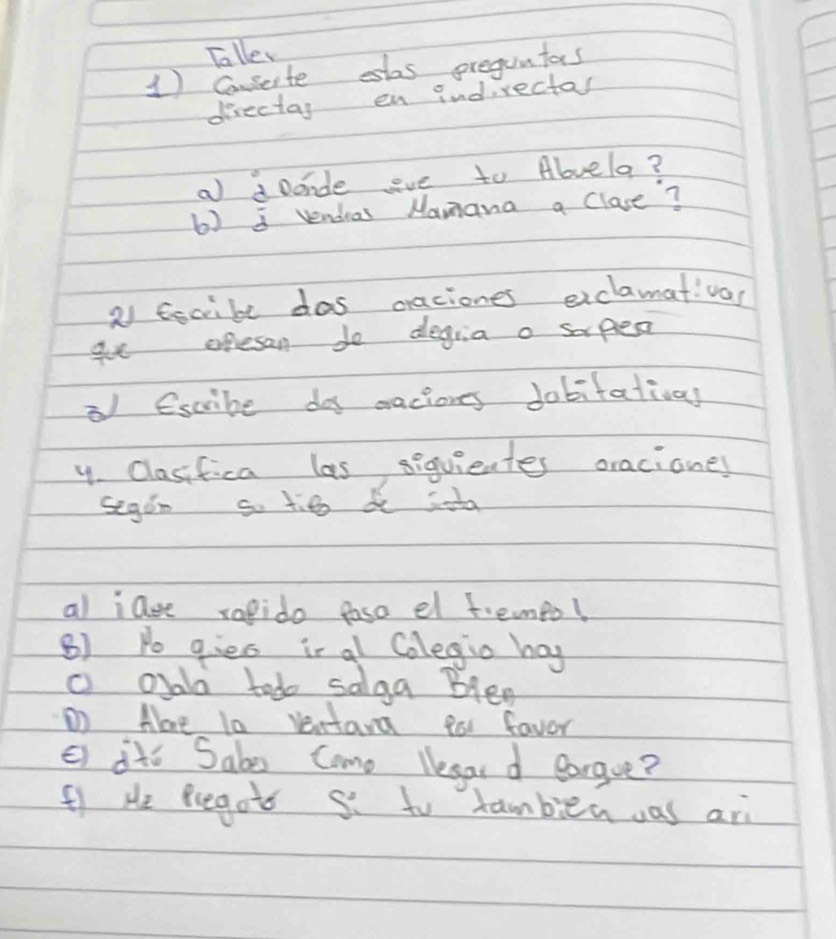 Taller
1) Convierte estas preguntas
directas en indirectas
a) ¿Dónde vive tu Abuela?
b) ¿ vendras Mañana a Clase?
2) Escribe dos oraciones exclamativas
que expresan de alegria o sorpresa
3) Escribe dos oraciones dubitativas
4. Clasifica las siguientes oraciones
según su tipo de
a) ¡Que rapido pasa el tiempo!
B) No quiero ir al Colegio hoy
C) Ojala todo salga Bien
D) Abre la ventana por favor
E) ¿tú Sabes Como llegar al parque?
f) Me pregunto Si tu tambien vas